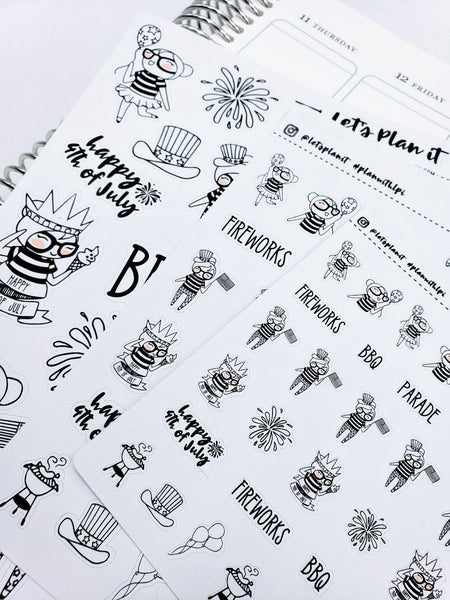 11 THURSDAY
12 FRIDAY
Let's Plan it
@letsplanit #planwithlpi
@letsplanit #planwithlpi
happy
4th of July
HAPPY
OF JULY
FIREWORKS
FIREWORKS
BBQ
PARADE
happy
4th of July
FIREWORKS
BBQ